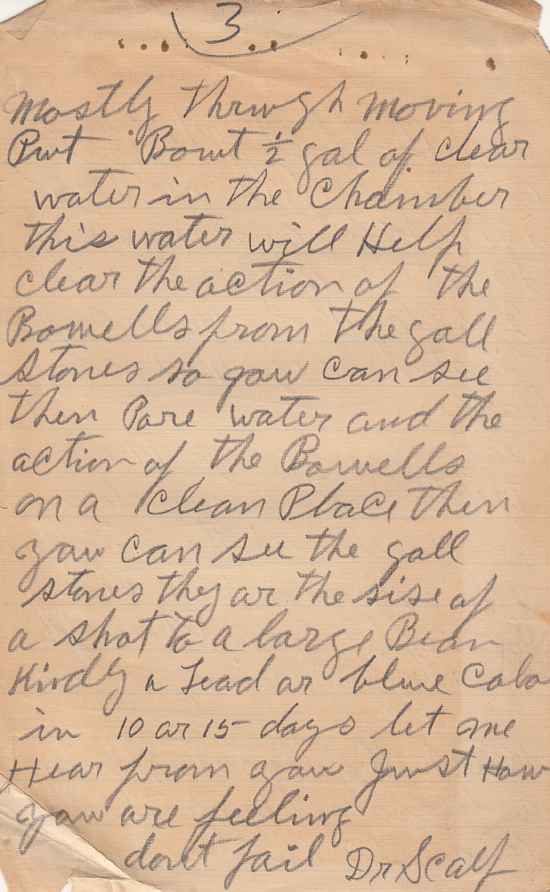 3
Mostly through moving
Put Bout ½ gal of clear
water in the Chamber
this water will Help
clear the action of the
Bowells from the gall
stones so you can see
then Pore water and the
action of the Bowells
on a clean Place then
you can see the gall
stones they ar the sise of
a shot to a large Bean
Kindly a Lead or blue Colo
in 10 or 15 days let me
Hear from you Just How
you are feeling
dont fail Dr Scalf